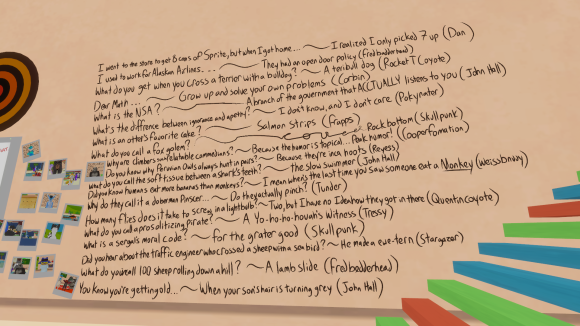 I went to the store to get 6 cans of Sprite, but when I got home... ~ I realized I only picked 7 up (Dan)
I used to work for Alaskan Airlines.... ~ They had an open door policy (fredbadderhead)
What do you get when you cross a terrior with a bulldog? ~ A teribull dog (RocketTCoyote)
Dear Math... ~ Grow up and solve your own problems (Corbin)
What is the NSA? ~ A branch of the government that ACTUALLY listens to you (John Hall)
What's the difference between ignorance and apathy? ~ I don't know, and I don't care (Pokynator)
What is an otter's favorite cake? ~ Salmon strips (frapps)
What do you call a fox golem? ~ Rock bottom (Skullpunk)
Why are climbers such relatable commedians? ~ Because the humor is topical... Peak humor! (Ooporfomation)
Do you know why Peruvian Owls always hunt in pairs? ~ Because they're inca hoots (Reyess)
What do you call the soft tissue between a shark's teeth? ~ the slow swimmer (John Hall)
Did you know humans eat more bananas than monkeys? ~ I mean when's the last time you saw someone eat a Monkey (Weissbunny)
Why do they call it a doberman Pinscer... ~ Do they actually pinch? (Tunder)
How many flies does it take to screw in a lightbulb? ~ Two, but I have no Idea how they got in there (Quentincoyote)
What do you call a prositizing pirate? ~ A Yo-ho-ho-hovah's Witness (Tressy)
What is a sergal's moral code? ~ for the grater good (Skullpunk)
Did you hear about the traffic engineer who crossed a sheep with a sea bird? ~ He made a ewe-tern (Stargazer)
What do you call 100 sheep rolling down a hill? ~ A lamb slide (fredbadderhead)
You know you're getting old... ~ When your son's hair is turning grey (John Hall)